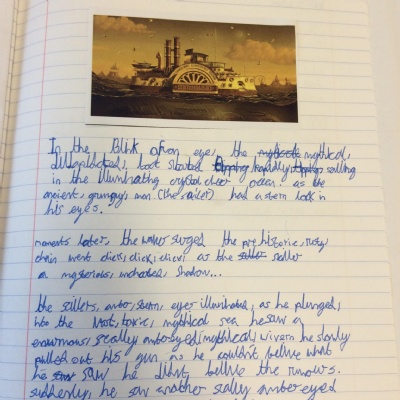 In the Blink of an eye, the mythical,
dilapidated, boat started rapidly sailing
in the illuminating crystal clear ocean. as the
ancient, grungy, man. (the sailer) had a stern look in
his eyes.
moments later, the water surged the prehistoric, rusty
chain went click, click, click, as the sailer
a mysterious, uncharted, shadow...
the sailers, amber, stern, eyes illuminated, as he plunged,
into the Most, toxic, mythical sea he saw a
enourmous, scally amber eyed mythical wivern he slowly
pulled out his gun as he couldnt belive what
he saw he didnt belive the rumours.
suddenly, he saw another scally amber eyed